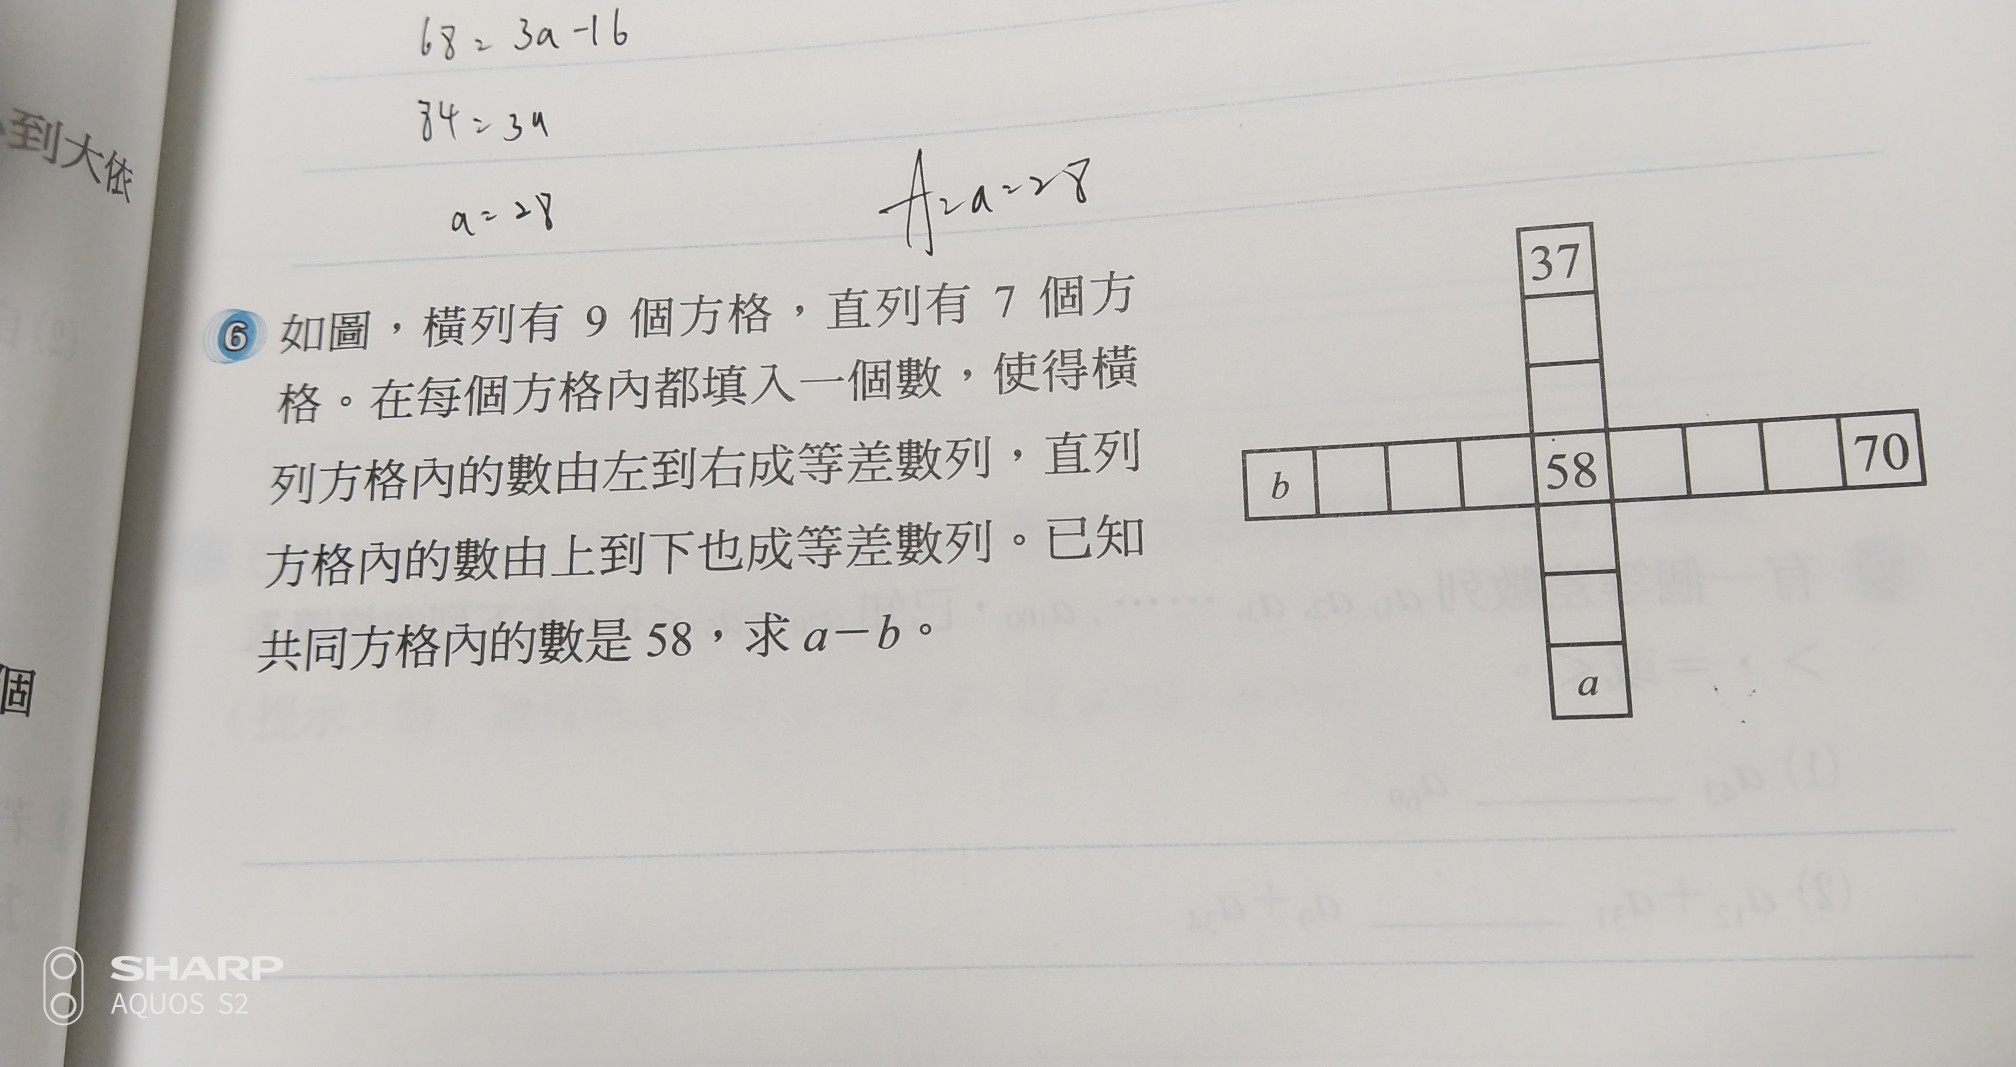 68=3a-16
84=3a
到大依
a=28
A=a=28
37
6 如圖，橫列有 9 個方格，直列有 7 個方
格。在每個方格內都填入一個數，使得橫
列方格內的數由左到右成等差數列，直列
方格內的數由上到下也成等差數列。已知
共同方格內的數是 58，求 a－b。
b 58 70
a
個
SHARP
AQUOS S2